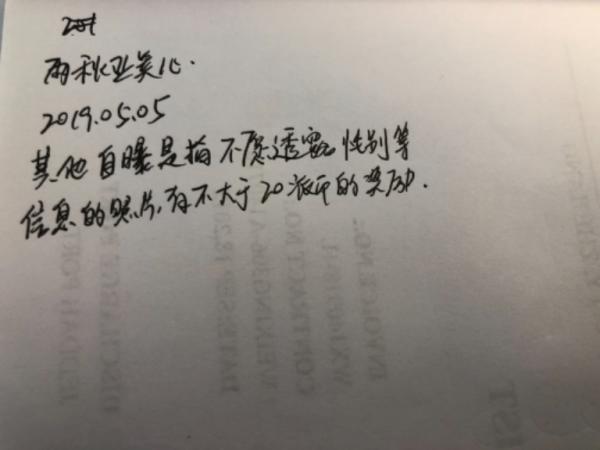 雨秋亚美化.
2019.05.05
其他自曝是指不愿透露性别等
信息的照片,有不大于20派币的奖励.